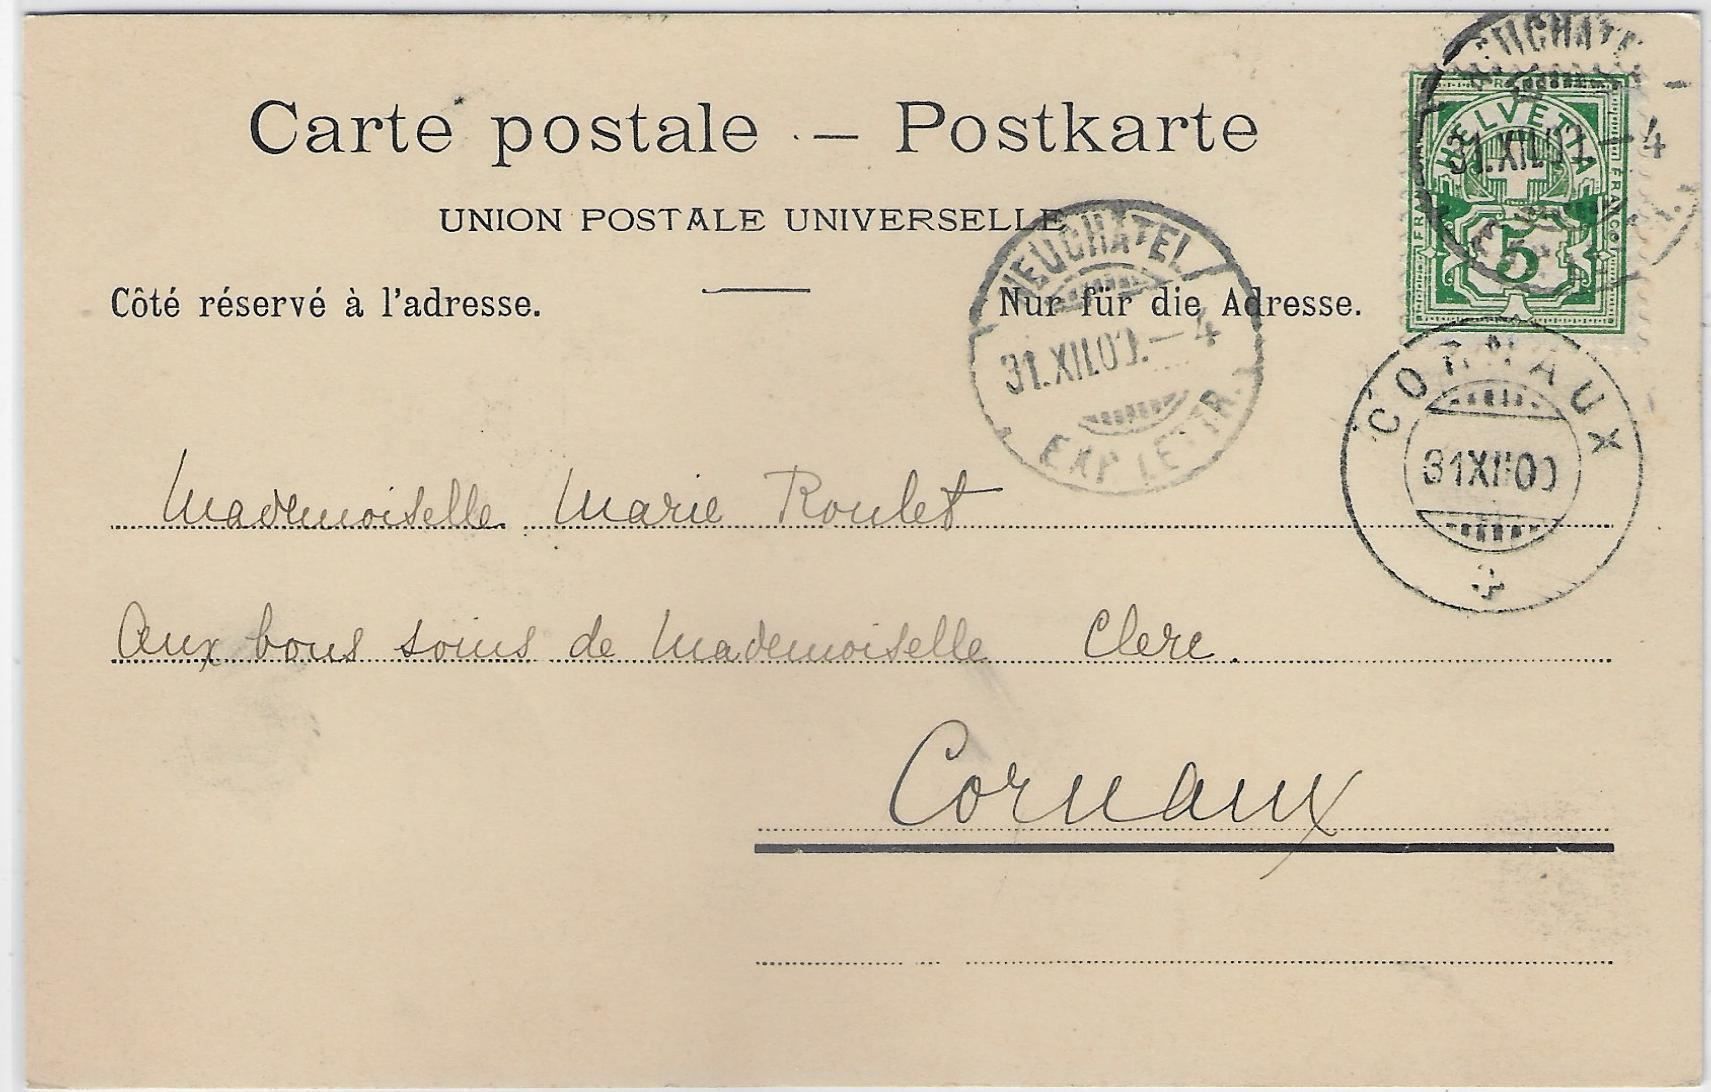 Carte postale — Postkarte
UNION POSTALE UNIVERSELLE
Côté réservé à l'adresse.
Nur für die Adresse.
HELVETIA
FRANCO
5
31.XII.00.–4
NEUCHATEL
31.XII.00.–4
EXP. LETTR.
CORNAUX
31 XII 00
Mademoiselle Marie Roulet
Aux bons soins de Mademoiselle Clerc.
Cornaux